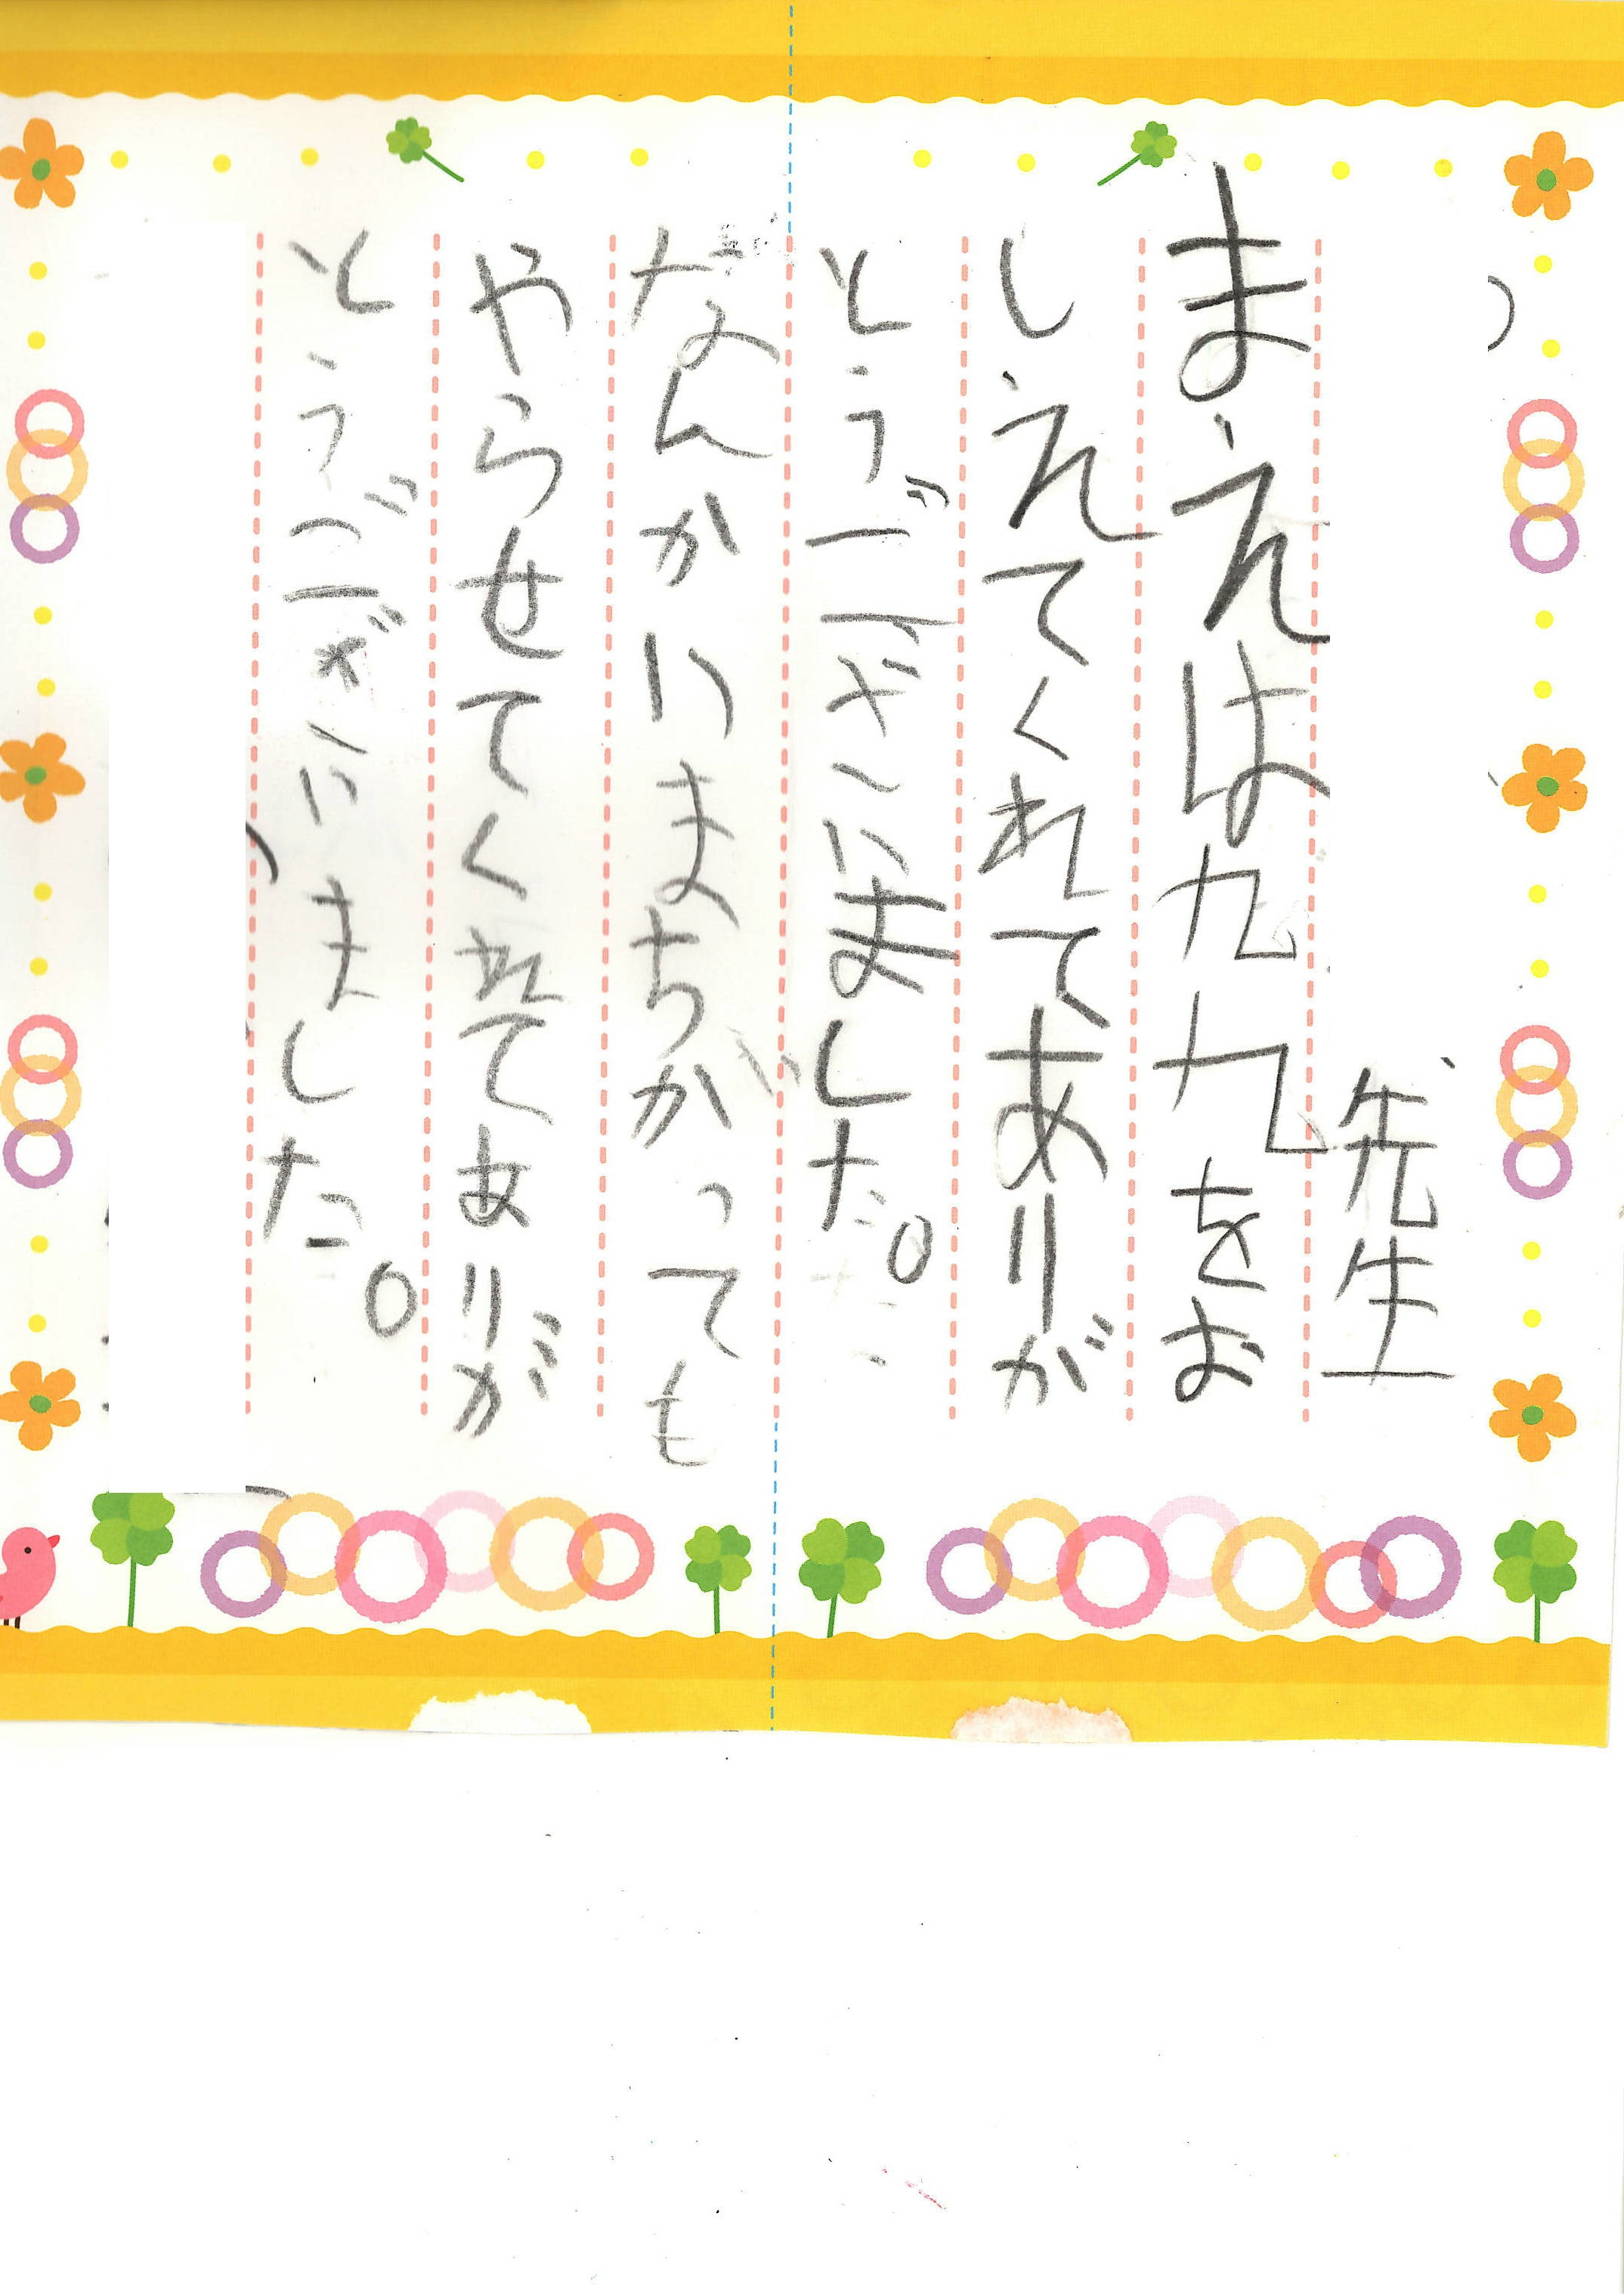 先生
まえは九九をお
しえてくれてありが
とうございました。
なんかいまちがっても
やらせてくれてありが
とうございました。